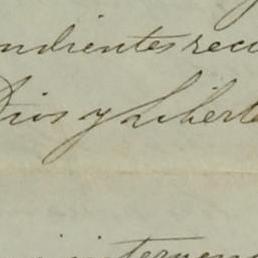 ndientes recu
Dios y Liberta
interven